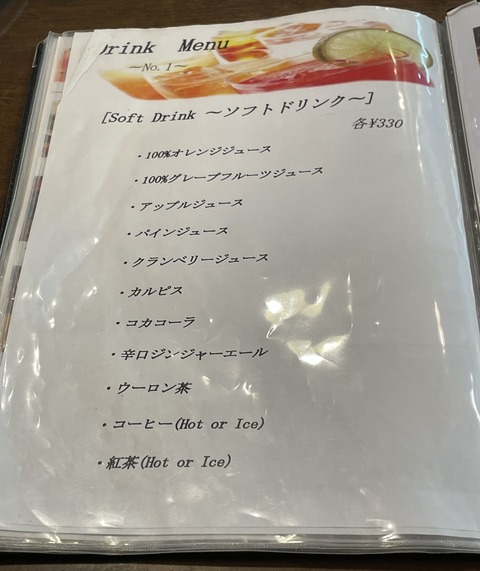 Drink Menu
～No.1～
[Soft Drink ～ソフトドリンク～]
各¥330
・100%オレンジジュース
・100%グレープフルーツジュース
・アップルジュース
・パインジュース
・クランベリージュース
・カルピス
・コカコーラ
・辛口ジンジャーエール
・ウーロン茶
・コーヒー(Hot or Ice)
・紅茶(Hot or Ice)